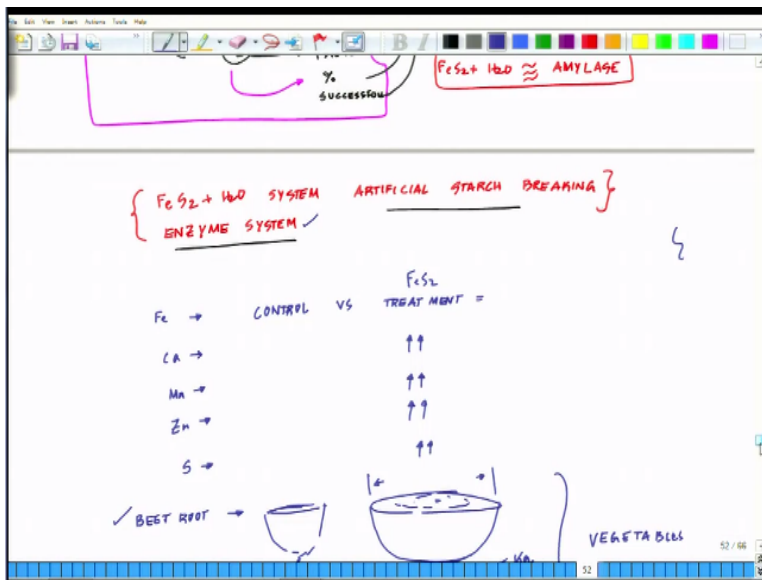 File Edit View Insert Actions Tools Help
B I
%
SUCCESSFUL
FeS2 + H2O ≈ AMYLASE
{ FeS2 + H2O SYSTEM ARTIFICIAL STARCH BREAKING }
ENZYME SYSTEM ✓
FeS2
Fe → CONTROL VS TREATMENT =
Ca → ↑↑
Mn → ↑↑
Zn → ↑↑
S → ↑↑
✓ BEET ROOT →
VEGETABLES
52 / 66
52